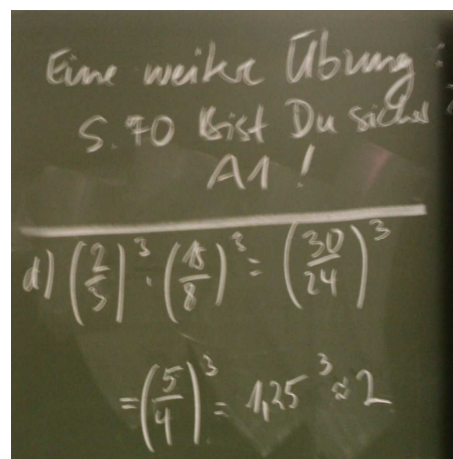 Eine weitere Übung :
S. 70 Bist Du sicher
A1 !
d) (2/3)³ · (15/8)³ = (30/24)³
= (5/4)³ = 1,25³ ≈ 2